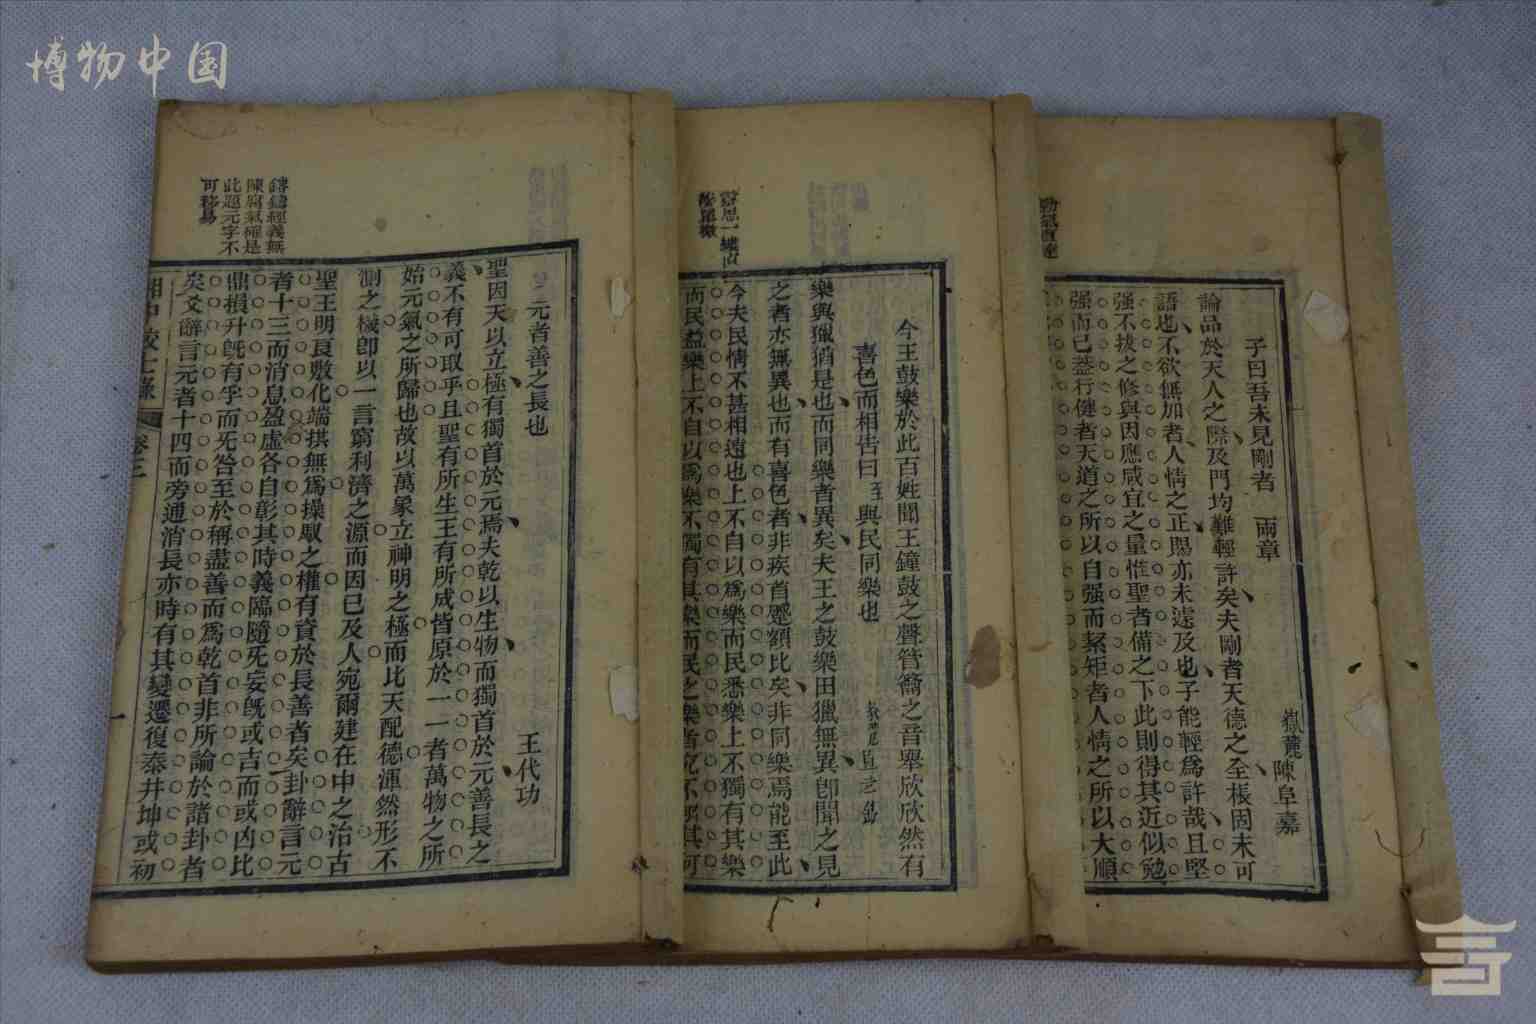 博物中国
子曰吾未見剛者 兩章
嶽麓 陳阜嘉
論品於天人之際及門均難輕許矣夫剛者天德之全棖固未可
語也不欲無加者人情之正賜亦未逮及也子能輕爲許哉且堅
强不拔之修與因應咸宜之量惟聖者備之下此則得其近似勉
强而已蓋行健者天道之所以自强而絜矩者人情之所以大順
勁氣直達
今王鼓樂於此百姓聞王鐘鼓之聲管籥之音舉欣欣然有
喜色而相告曰 至 與民同樂也
樂與獵猶是也而同樂者異矣夫王之鼓樂田獵無異卽聞之見
之者亦無異也而有喜色者非疾首蹙額比矣非同樂焉能至此
今夫民情不甚相遠也上不自以爲樂而民悉樂上不獨有其樂
而民益樂上不自以爲樂不獨有其樂而民之樂者
元者善之長也
王代功
聖因天以立極有獨首於元焉夫乾以生物而獨首於元善長之
義不有可取乎且聖有所生王有所成皆原於一一者萬物之所
始元氣之所歸也故以萬象立神明之極而比天配德渾然形不
測之機卽以一言窮利濟之源而因已及人宛爾建在中之治古
聖王明良敷化端拱無爲操馭之權有資於長善者矣卦辭言元
者十三而消息盈虛各自彰其時義臨隨无妄旣或吉而或凶比
鼎損升旣有孚而无咎至於稱盡善而爲乾首非所論於諸卦者
矣爻辭言元者十四而旁通消長亦時有其變遷復泰井坤或初
鎔鑄經義無
陳腐氣確是
此題元字不
可移易
湘中校士錄
卷三
一